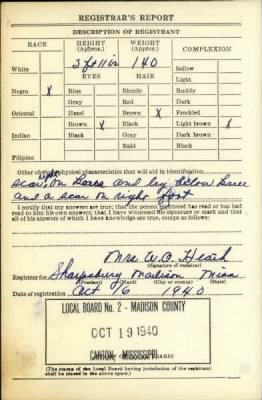 REGISTRAR'S REPORT
DESCRIPTION OF REGISTRANT
RACE HEIGHT (Approx.) WEIGHT (Approx.) COMPLEXION
5 ft 11 in 140
White Sallow
EYES HAIR Light
Negro X Blue Blonde Ruddy
Gray Red Dark
Oriental Hazel Brown X Freckled
Brown X Black Light brown X
Indian Black Gray Dark brown
Bald Black
Filipino
Other obvious physical characteristics that will aid in identification
scar on knee and leg below knee
and a scar on right foot
I certify that my answers are true; that the person registered has read or has had
read to him his own answers; that I have witnessed his signature or mark and that
all of his answers of which I have knowledge are true, except as follows:
Mrs W. O. Heath
(Signature of registrar)
Registrar for Sharpsburg Madison Miss
(Precinct) (Ward) (City or county) (State)
Date of registration Oct. 16 1940
LOCAL BOARD No. 2 - MADISON COUNTY
OCT 19 1940
CANTON, MISSISSIPPI
(The stamp of the Local Board having jurisdiction of the registrant
shall be placed in the above space.)